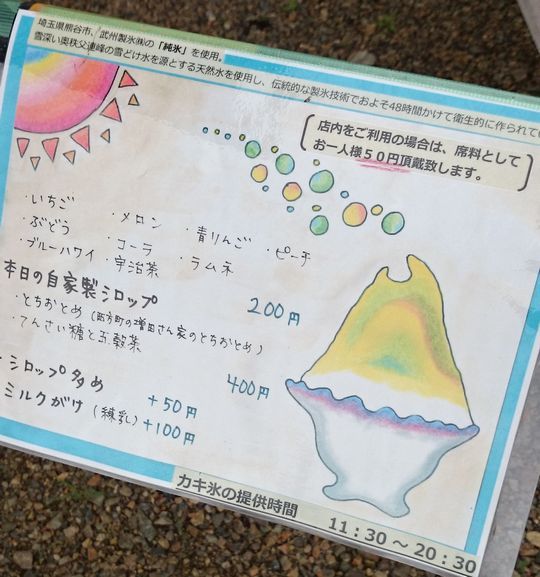 埼玉県熊谷市、武州製氷㈱の「純氷」を使用。
雪深い奥秩父連峰の雪どけ水を源とする天然水を使用し、伝統的な製氷技術でおよそ48時間かけて衛生的に作られて
店内をご利用の場合は、席料として
お一人様50円頂戴致します。
・いちご ・メロン ・青りんご ・ピーチ
・ぶどう ・コーラ ・ラムネ
・ブルーハワイ ・宇治茶
200円
本日の自家製シロップ
・とちおとめ(西方町の増田さん家のとちおとめ)
・てんさい糖と五穀茶
400円
・シロップ多め +50円
ミルクがけ(練乳)+100円
カキ氷の提供時間
11:30～20:30